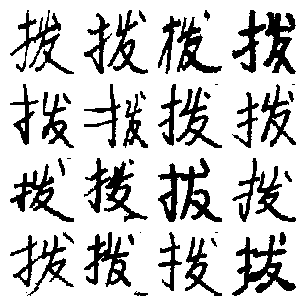 拨拨拨拨
拨拨拨拨
拨拨拨拨
拨拨拨拨